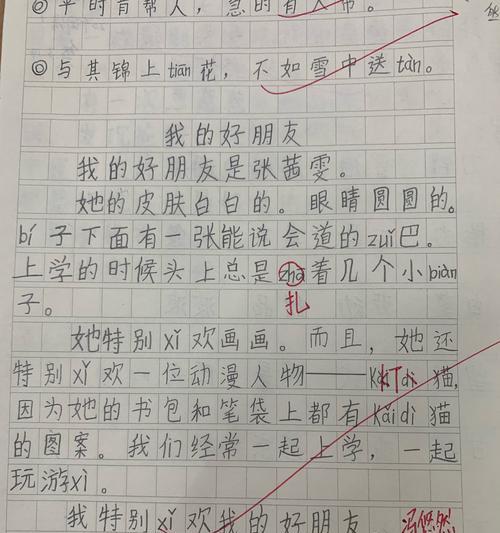 ◎ 平时肯帮人，急时有人帮。
◎ 与其锦上tiān花，不如雪中送tàn。
我的好朋友
我的好朋友是张茜雯。
她的皮肤白白的。眼睛圆圆的。
bí子下面有一张能说会道的zuǐ巴。
上学的时候头上总是zhā着几个小biàn
扎
子。
她特别xǐ欢画画。而且，她还
特别xǐ欢一位动漫人物——KǎiTdì猫，
因为她的书包和笔袋上都有kǎidì猫
的图案。我们经常一起上学，一起
玩游xì。
我特别xǐ欢我的好朋友